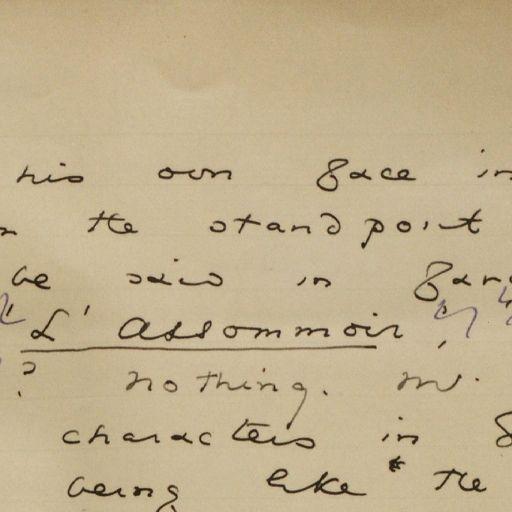 his own face in
n the standpoint
be said in
L'Assommoir,
? Nothing. Mr.
characters in
being like the